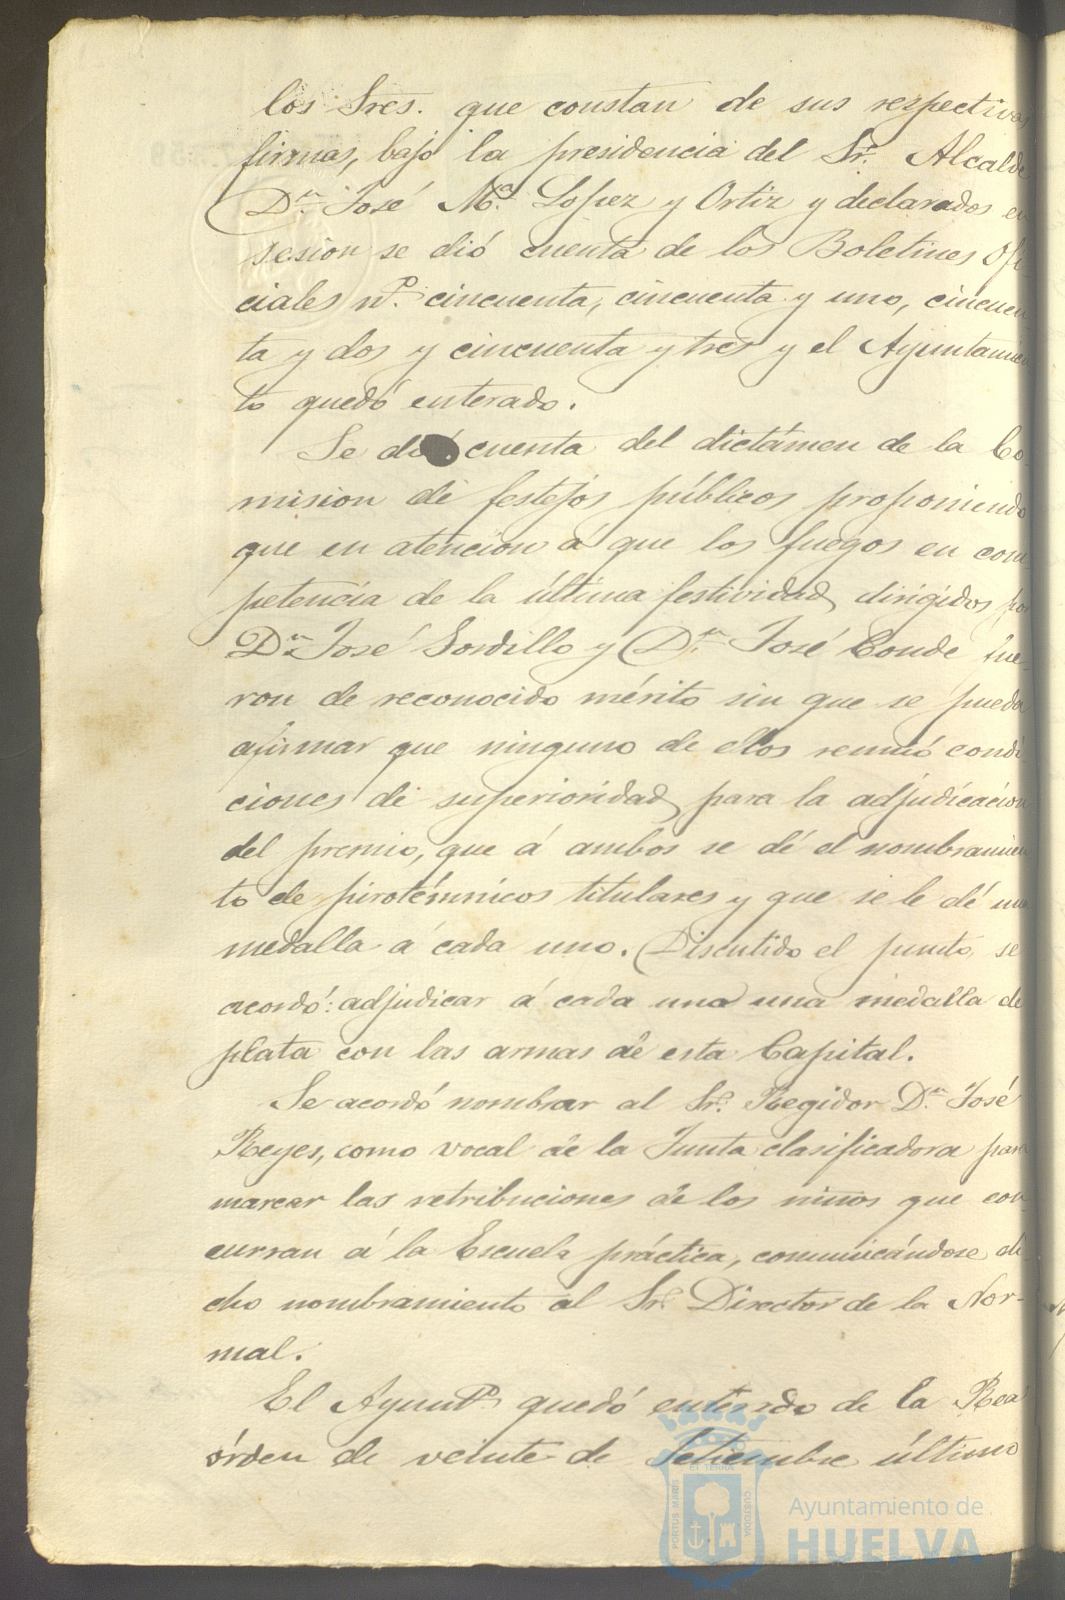 los Sres. que constan de sus respectivas
firmas, bajo la presidencia del Sr. Alcalde
Dn. José Ma. Lopez y Ortiz y declarados en
sesion se dió cuenta de los Boletines Ofi-
ciales nos. cincuenta, cincuenta y uno, cincuen-
ta y dos y cincuenta y tres y el Ayuntamien
to quedó enterado.
Se dió cuenta del dictámen de la Co-
mision de festejos públicos proponiendo
que en atencion á que los fuegos en com
petencia de la última festividad, dirigidos por
Dn. José Sordillo y Dn. José Conde fue-
ron de reconocido mérito sin que se pueda
afirmar que ninguno de ellos reunió condi
ciones de superioridad para la adjudicacion
del premio, que á ambos se dé el nombramien
to de pirotémnicos titulares y que se le dé una
medalla á cada uno. Discutido el punto, se
acordó: adjudicar á cada uno una medalla de
plata con las armas de esta Capital.
Se acordó nombrar al Sr. Regidor Dn. José
Reyes, como vocal de la Junta clasificadora para
marcar las retribuciones de los niños que con-
curran á la Escuela práctica, comunicándose di
cho nombramiento al Sr. Director de la Nor-
mal.
El Ayunto. quedó enterado de la Real
órden de veinte de Setiembre último
PORTUS MARIS ET TERRÆ CUSTODIA
Ayuntamiento de
HUELVA